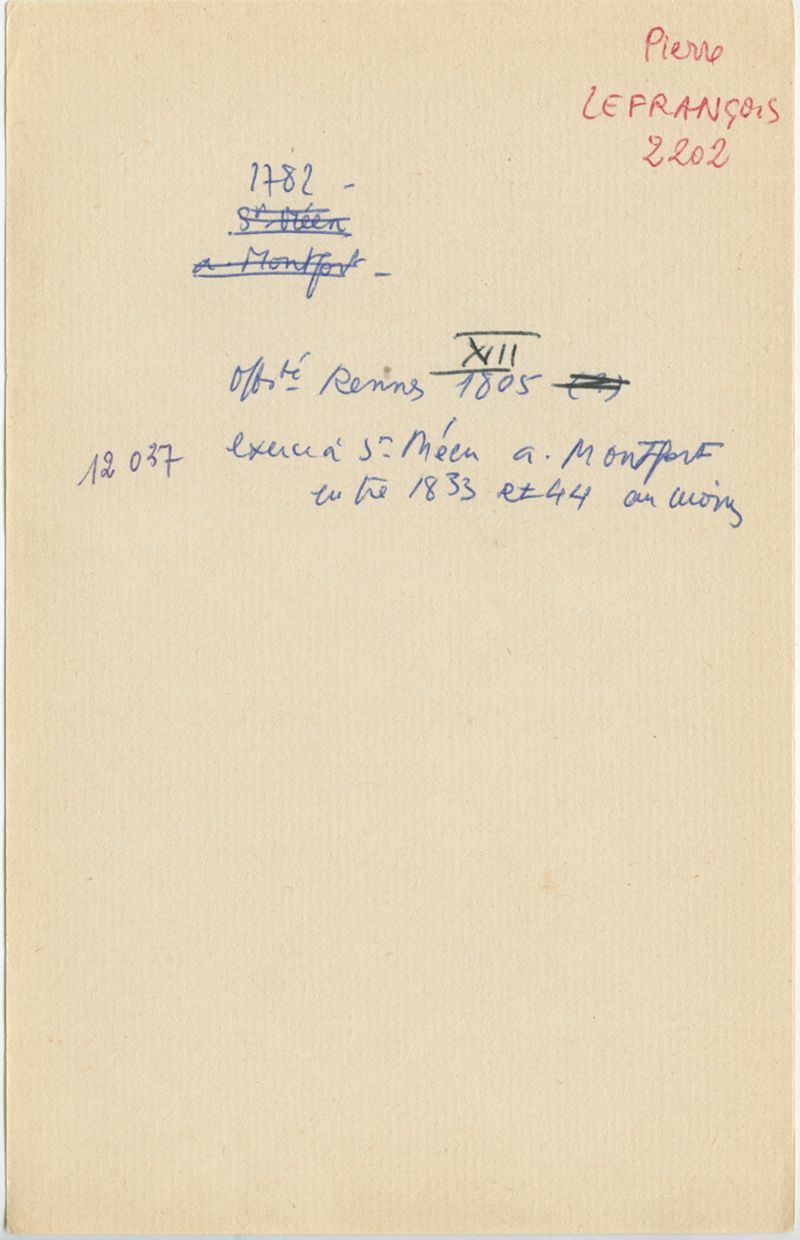 Pierre
LEFRANÇOIS
2202
1782 -
St Méen
a. Montfort -
XIII
off. té Rennes 1805 (?)
12 037 exerce à St Méen a. Montfort
entre 1833 et 44 au moins